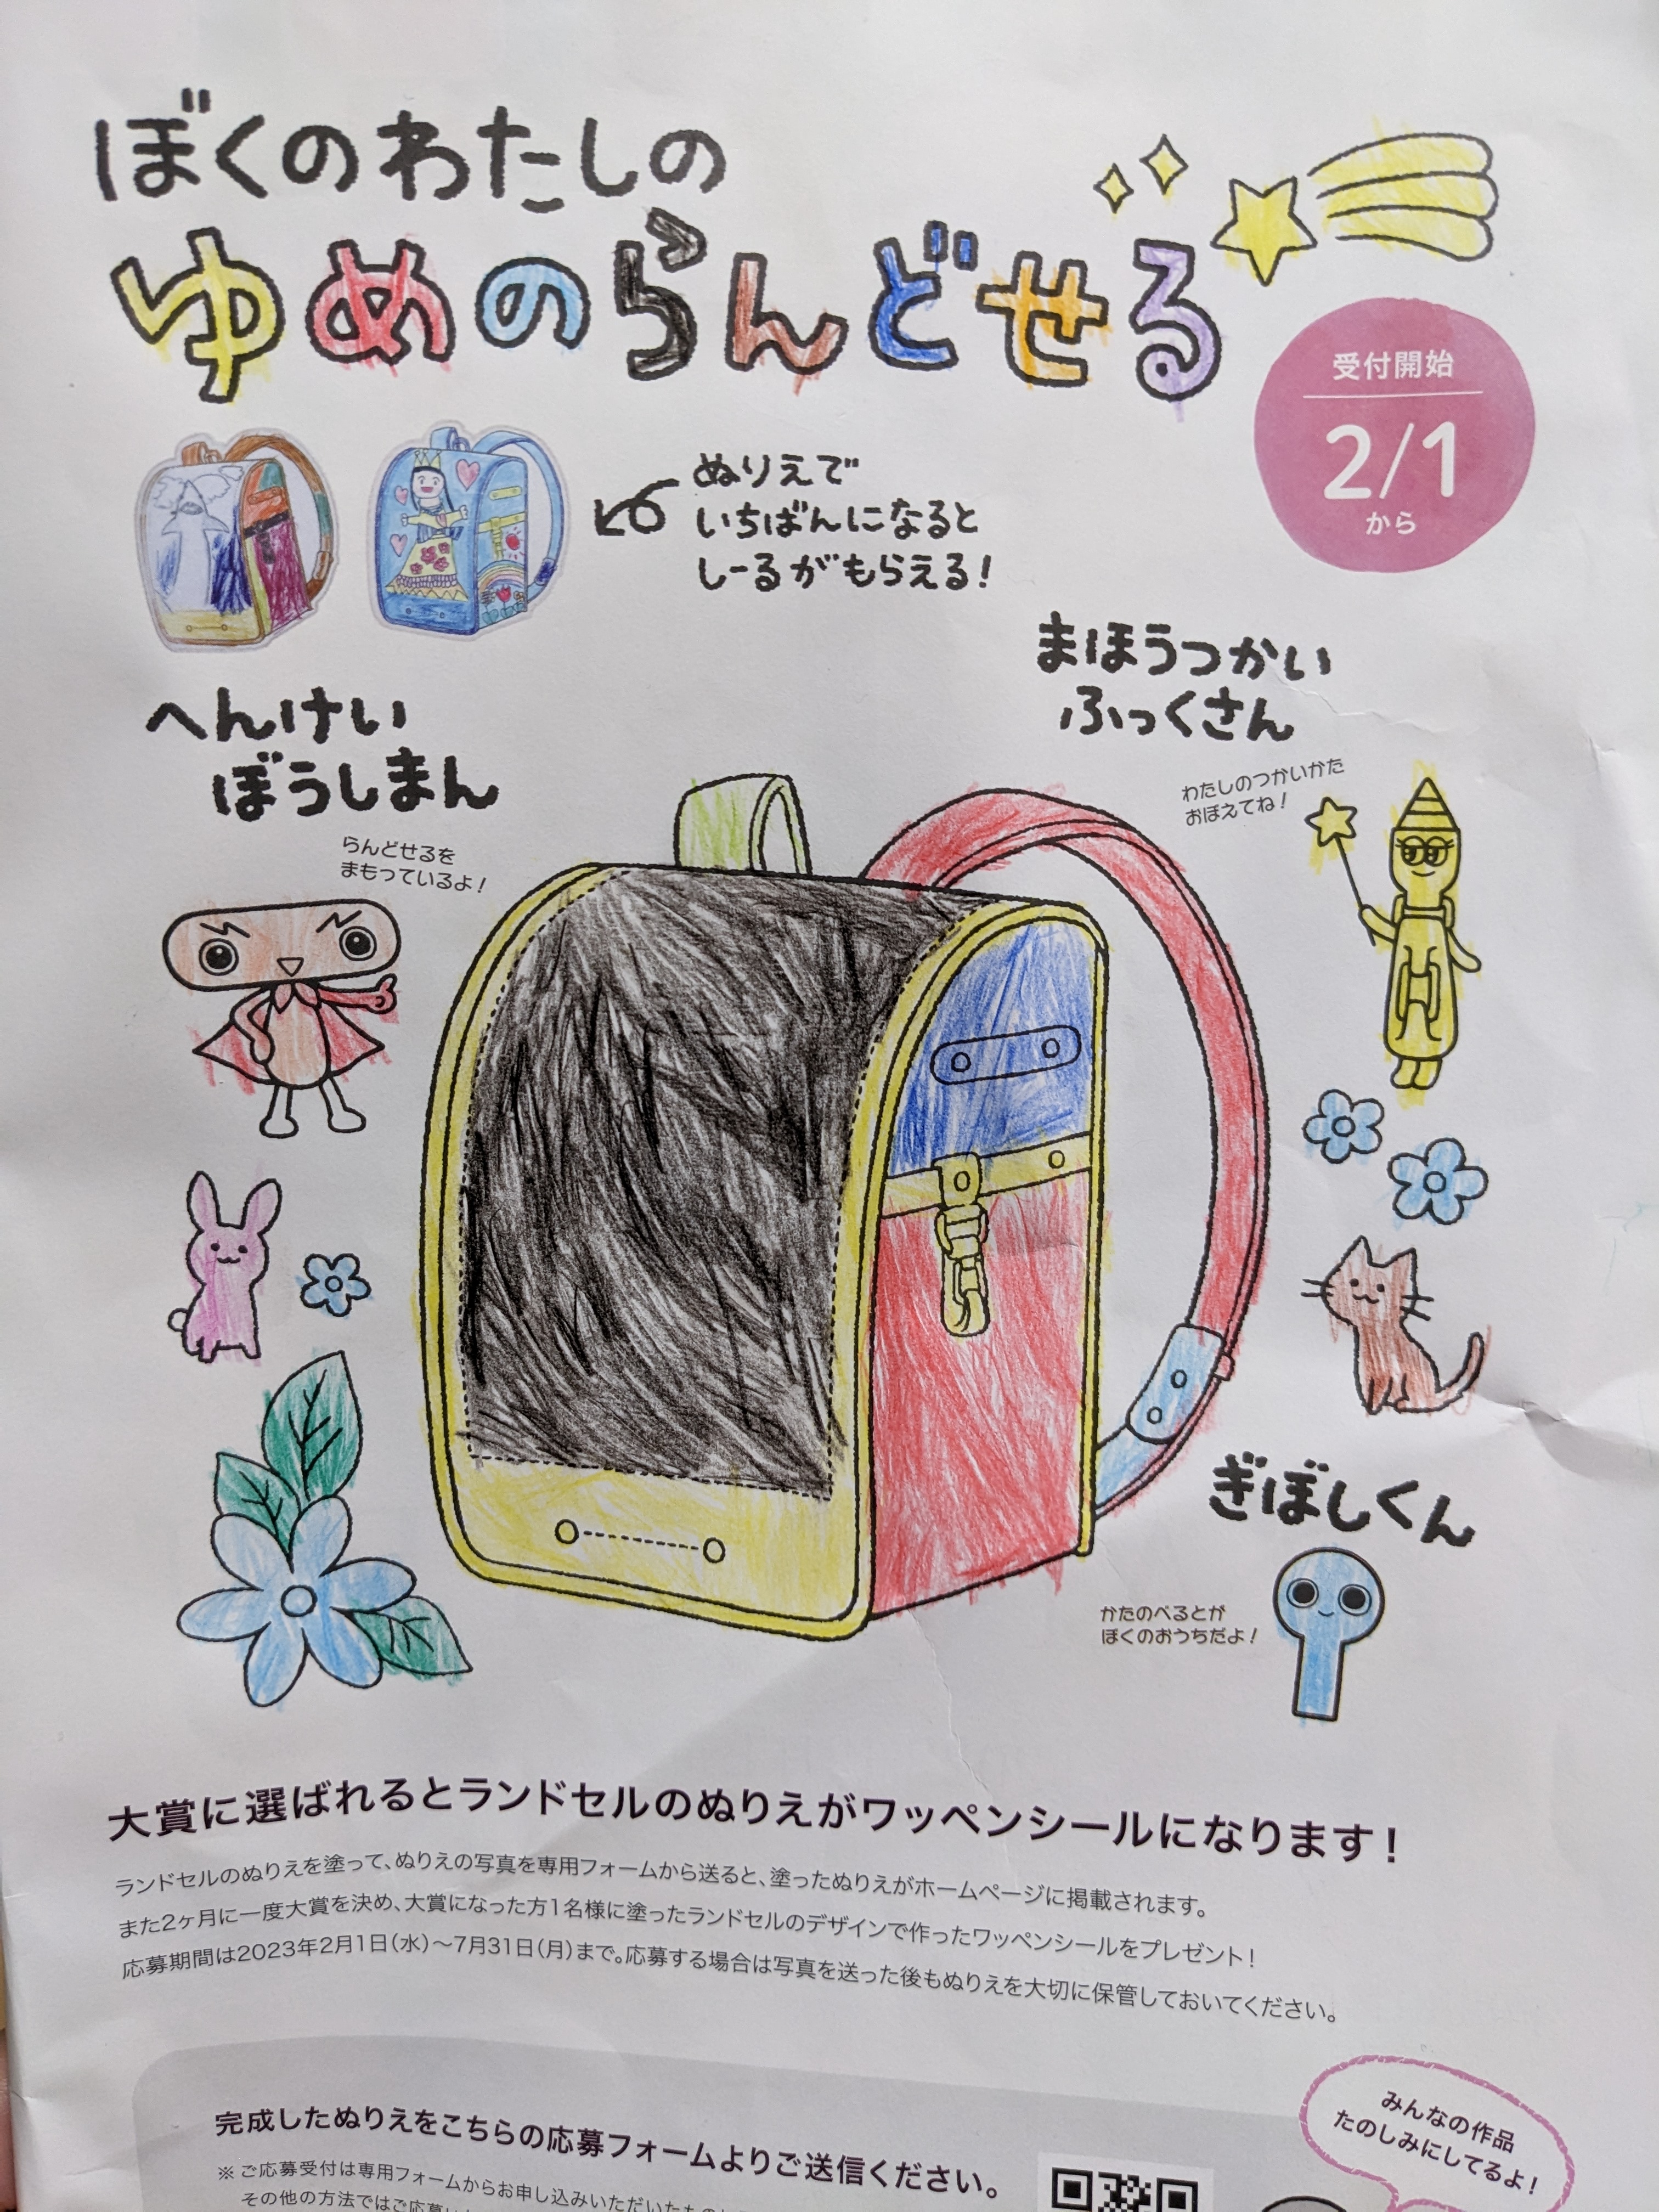 ぼくのわたしの
ゆめのらんどせる
受付開始
2/1
から
ぬりえで
いちばんになると
しーるがもらえる!
まほうつかい
ふっくさん
わたしのつかいかた
おぼえてね!
へんけい
ぼうしまん
らんどせるを
まもっているよ!
ぎぼしくん
かたのべるとが
ぼくのおうちだよ!
大賞に選ばれるとランドセルのぬりえがワッペンシールになります!
ランドセルのぬりえを塗って、ぬりえの写真を専用フォームから送ると、塗ったぬりえがホームページに掲載されます。
また2ヶ月に一度大賞を決め、大賞になった方1名様に塗ったランドセルのデザインで作ったワッペンシールをプレゼント!
応募期間は2023年2月1日(水)〜7月31日(月)まで。応募する場合は写真を送った後もぬりえを大切に保管しておいてください。
みんなの作品
たのしみにしてるよ!
完成したぬりえをこちらの応募フォームよりご送信ください。
※ご応募受付は専用フォームからお申し込みいただいたもの
その他の方法ではご応募